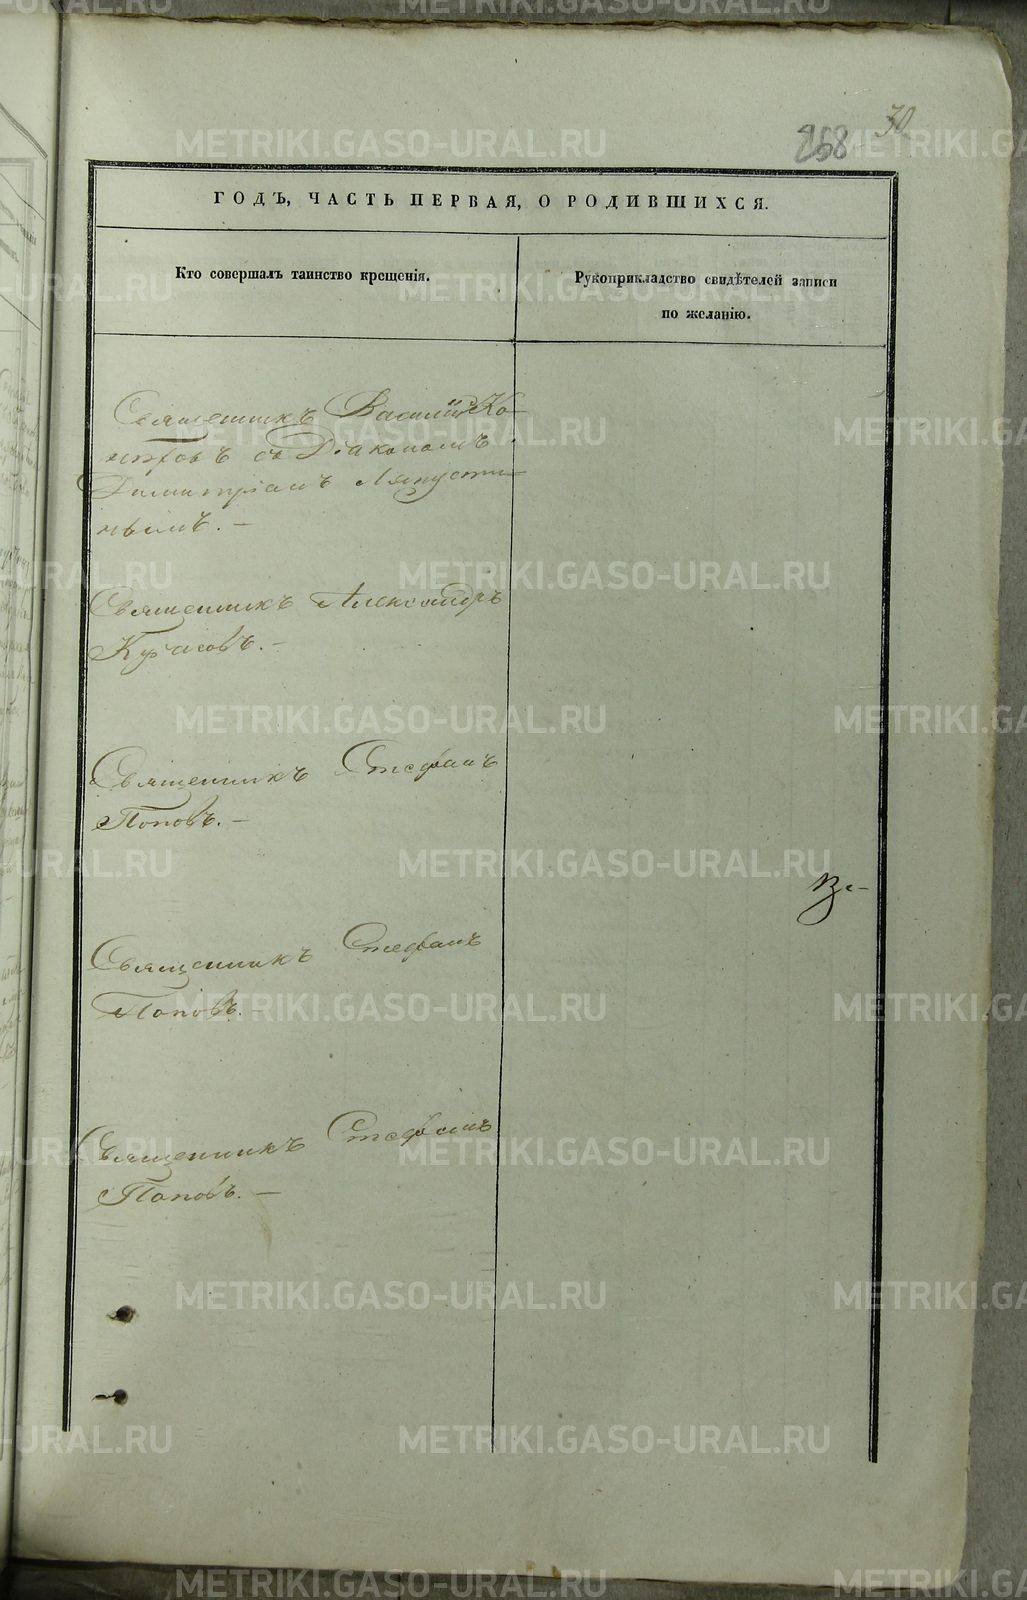 30
268
ГОДЪ, ЧАСТЬ ПЕРВАЯ, О РОДИВШИХСЯ.
Кто совершалъ таинство крещенія.
Рукоприкладство свидѣтелей записи
по желанію.
Священникъ Василій Ко-
съ Діакономъ
Димитріемъ Ляпусти-
нымъ. —
Священникъ Александръ
Красовъ. —
Священникъ Стефанъ
Поповъ. —
Священникъ Стефанъ
Поповъ. —
Священникъ Стефанъ
Поповъ. —
METRIKI.GASO-URAL.RU